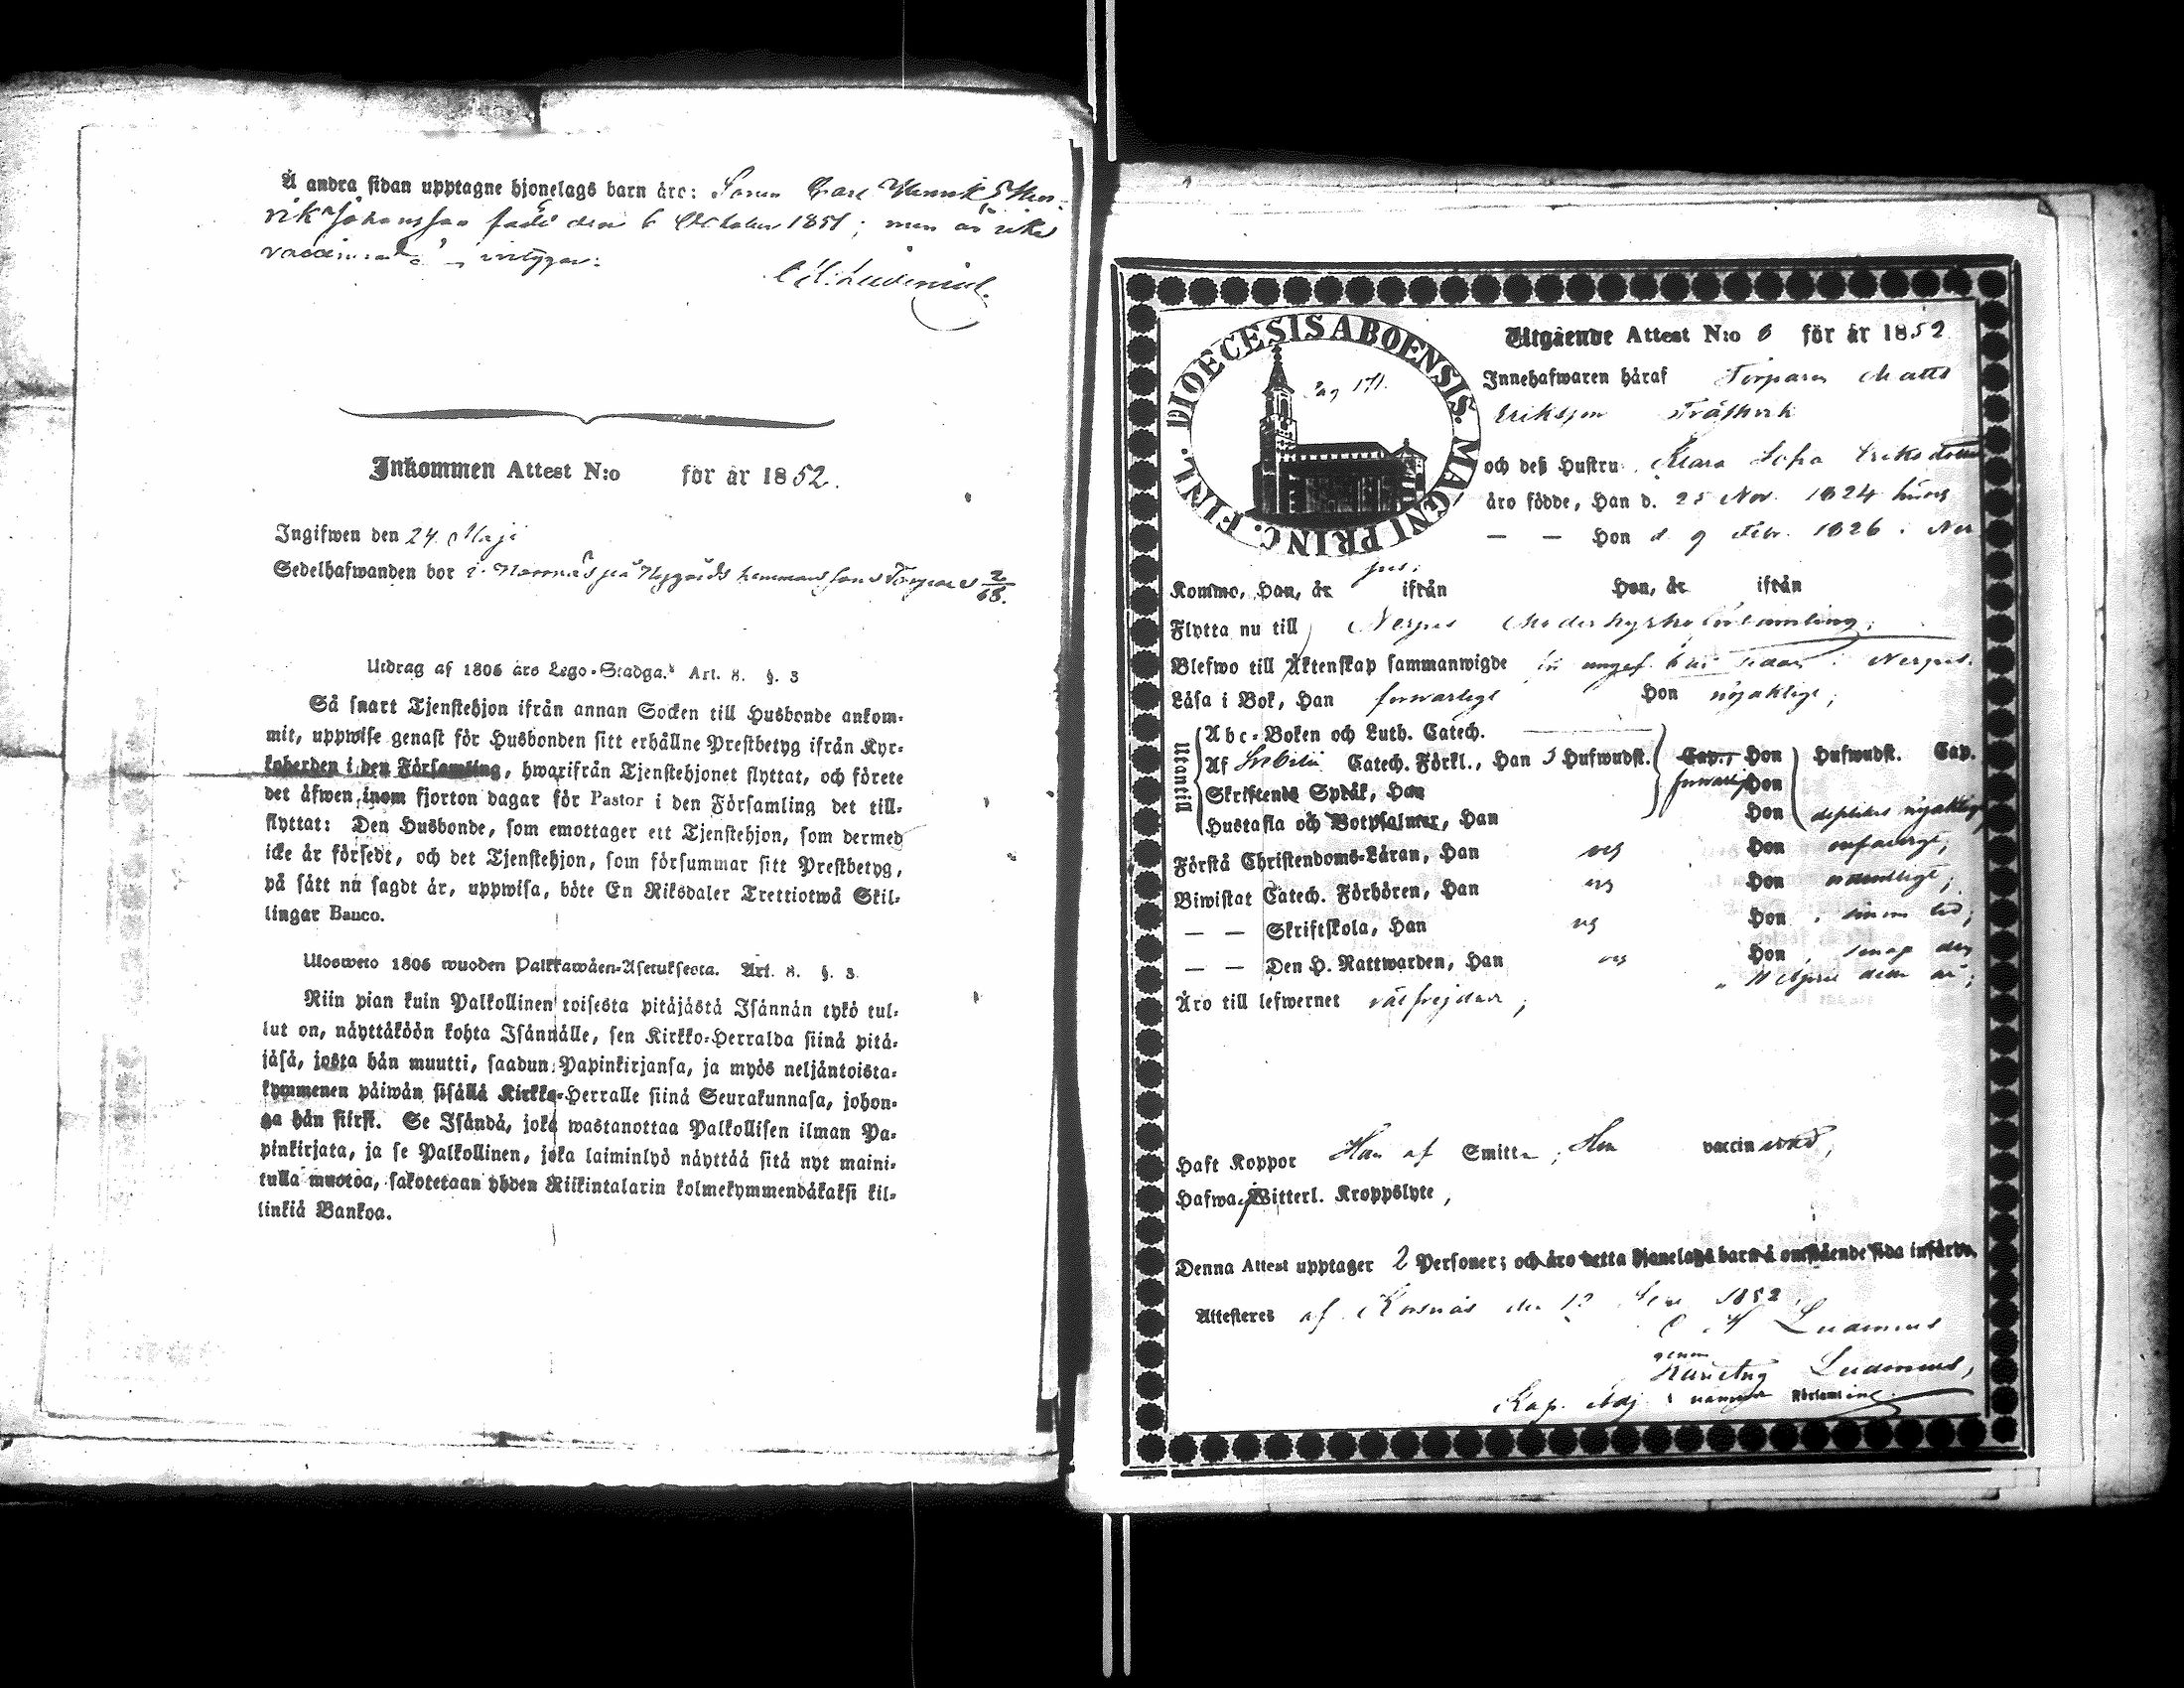 Å andra sidan upptagne hjonelags barn äro: Sonen Carl Henrik
Johansson född den 6 October 1851; men är icke
vaccinerad, intygar:
Inkommen Attest N:o för år 1852.
Ingifwen den 24 Maji
Sedelhafwanden bor i
Utdrag af 1806 års Lego-Stadga. Art. 8. §. 3
Så snart Tjenstehjon ifrån annan Socken till Husbonde ankom-
mit, uppwise genast för Husbonden sitt erhållne Prestbetyg ifrån Kyr-
koherden i den Församling, hwarifrån Tjenstehjonet flyttat, och förete
det äfwen inom fjorton dagar för Pastor i den Församling det till-
flyttat: Den Husbonde, som emottager ett Tjenstehjon, som dermed
icke är försedt, och det Tjenstehjon, som försummar sitt Prestbetyg,
på sätt nu sagdt är, uppwisa, böte En Riksdaler Trettiotwå Skil-
lingar Banco.
Ulosweto 1806 wuoden Palkkawäen-Asetuksesta. Art. 8. §. 3.
Niin pian kuin Palkollinen toisesta pitäjästä Isännän tykö tul-
lut on, näyttäköön kohta Isännälle, sen Kirkko-Herralda siinä pitä-
jäsä, josta hän muutti, saadun Papinkirjansa, ja myös neljäntoista-
kymmenen päiwän sisällä Kirkko-Herralle siinä Seurakunnasa, johon-
ga hän siirst. Se Isändä, joka wastanottaa Palkollisen ilman Pa-
pinkirjata, ja se Palkollinen, joka laiminlyö näyttää sitä nyt maini-
tulla muotoa, sakotetaan yhden Riikintalarin kolmekymmendäkaksi kil-
linkiä Bankoa.
DIOECESIS ABOENSIS. MAGNI PRINC. FINL.
Pag 171.
Utgående Attest N:o 6 för år 1852
Innehafwaren häraf Torparen Matts
Eriksson Träskvik
och deß Hustru Klara Sofia Eriksdotter
äro födde, Han d. 25 Nov. 1824
— — Hon d 9 Febr. 1826 i Ner
pes;
Kommo, Han, år ifrån Hon, år ifrån
Flytta nu till Nerpes Moderkyrkoförsamling;
Blefwo till Äktenskap sammanwigde Nerpes.
Läsa i Bok, Han försvarligt Hon nöjaktigt;
Utantill
Abc-Boken och Luth. Catech.
Af Svebilii Catech. Förkl., Han 5 Hufwudst. Cap., Hon Hufwudst. Cap.
Skriftens Språk, Han försvarligt Hon
Hustafla och Botpsalmer, Han Hon nöjaktigt
Förstå Christendoms-Läran, Han Hon
Biwistat Catech. Förhören, Han Hon ordentligt;
— — Skriftskola, Han Hon i sinom tid;
— — Den H. Nattwarden, Han Hon
Äro till lefwernet välfrejdade;
Haft Koppor Han af Smitta; Hon vaccinerad;
Hafwa ej Witterl. Kroppslyte,
Denna Attest upptager 2 Personer; och äro detta Hjonelags barn å omstående sida införde.
Attesteres af Korsnäs den 1852
Ludenius
genom
Ludenius,
Kap. Adj. i nämnde Församling.